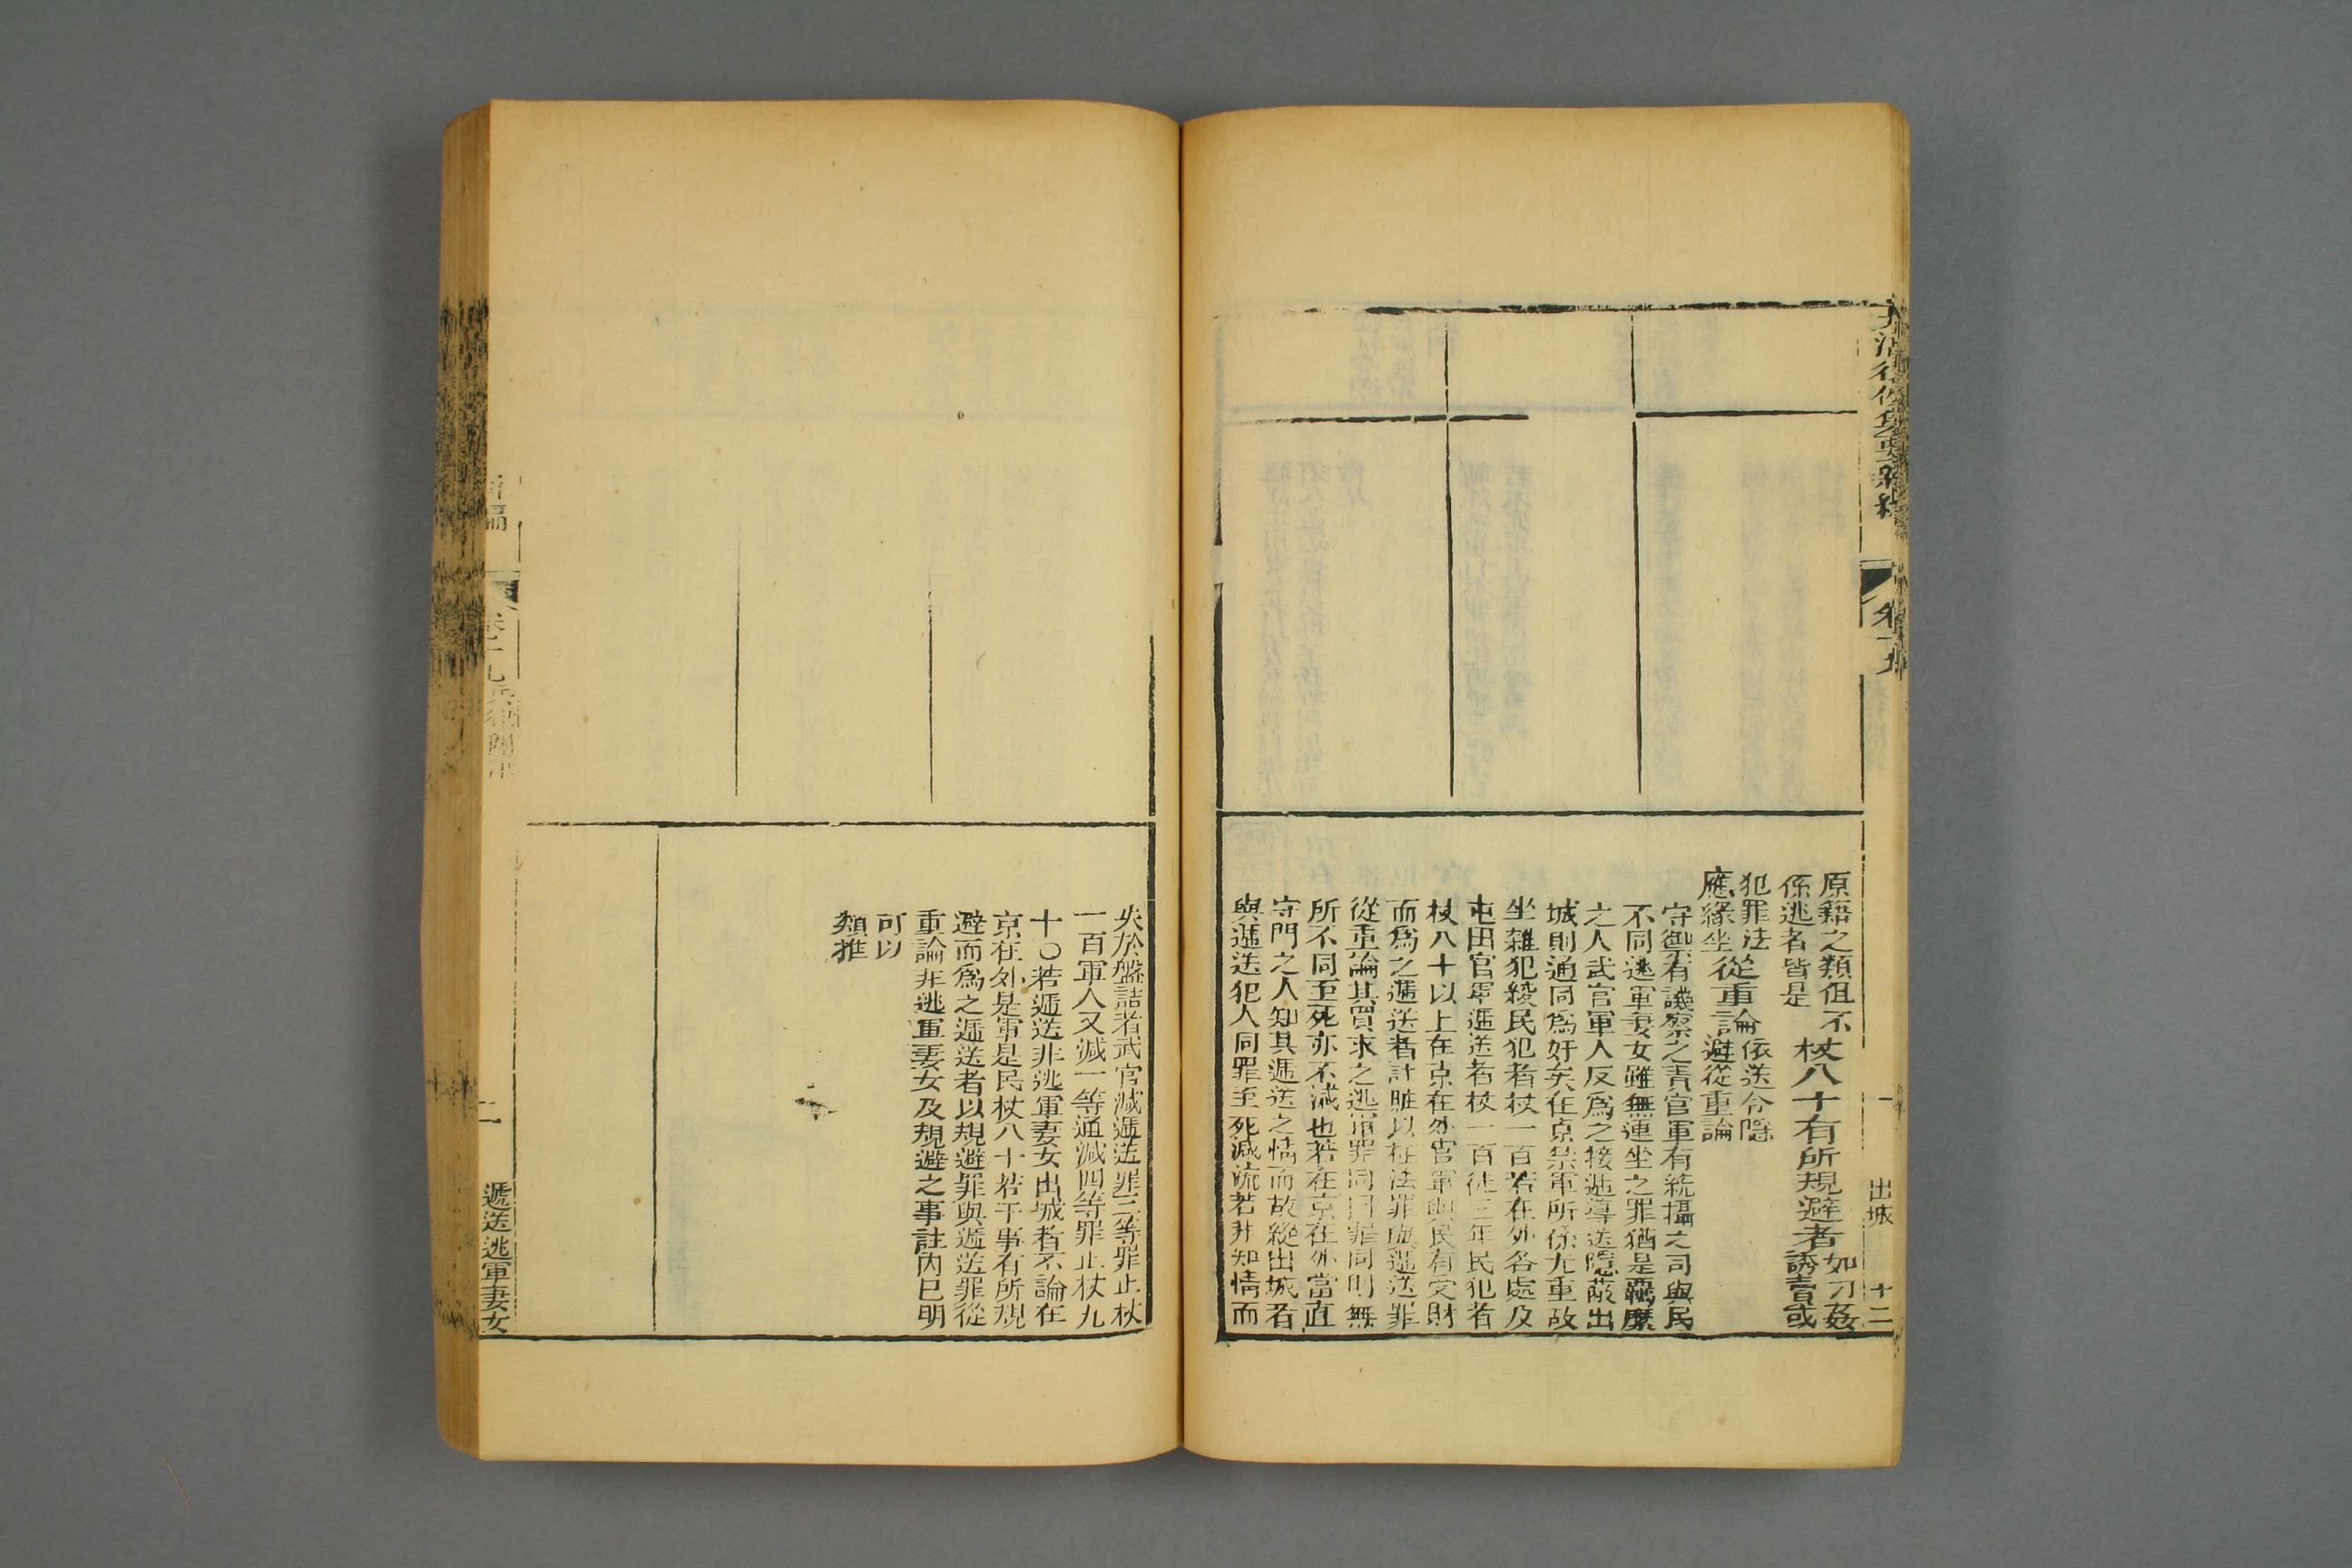 原籍之類但不
係逃者皆是
杖八十有所規避者
如刁姦
誘賣或
犯罪法
應緣坐
從重論
依送令隱
避從重論
守禦有譏察之責官軍有統攝之司與民
不同逃軍妻女雖無連坐之罪猶是羈縻
之人武官軍人反爲之接遞導送隱蔽出
城則通同爲奸矣在京禁軍所係尤重故
坐雜犯綾民犯者杖一百若在外各處及
屯田官軍遞送者杖一百徒三年民犯者
杖八十以上在京在外官軍與民有受財
而爲之遞送者計贓以枉法罪與遞送罪
從重論其買求之逃軍罪同同罪同則無
所不同至死亦不減也若在京在外當直
守門之人知其遞送之情而故縱出城者
與遞送犯人同罪至死減流若非知情而
出城 十二
失於盤詰者武官減遞送罪三等罪止杖
一百軍人又減一等通減四等罪止杖九
十〇若遞送非逃軍妻女出城者不論在
京在外是軍是民杖八十若干事有所規
避而爲之遞送者以規避罪與遞送罪從
重論非逃軍妻女及規避之事註內已明
可以
類推
遞送逃軍妻女